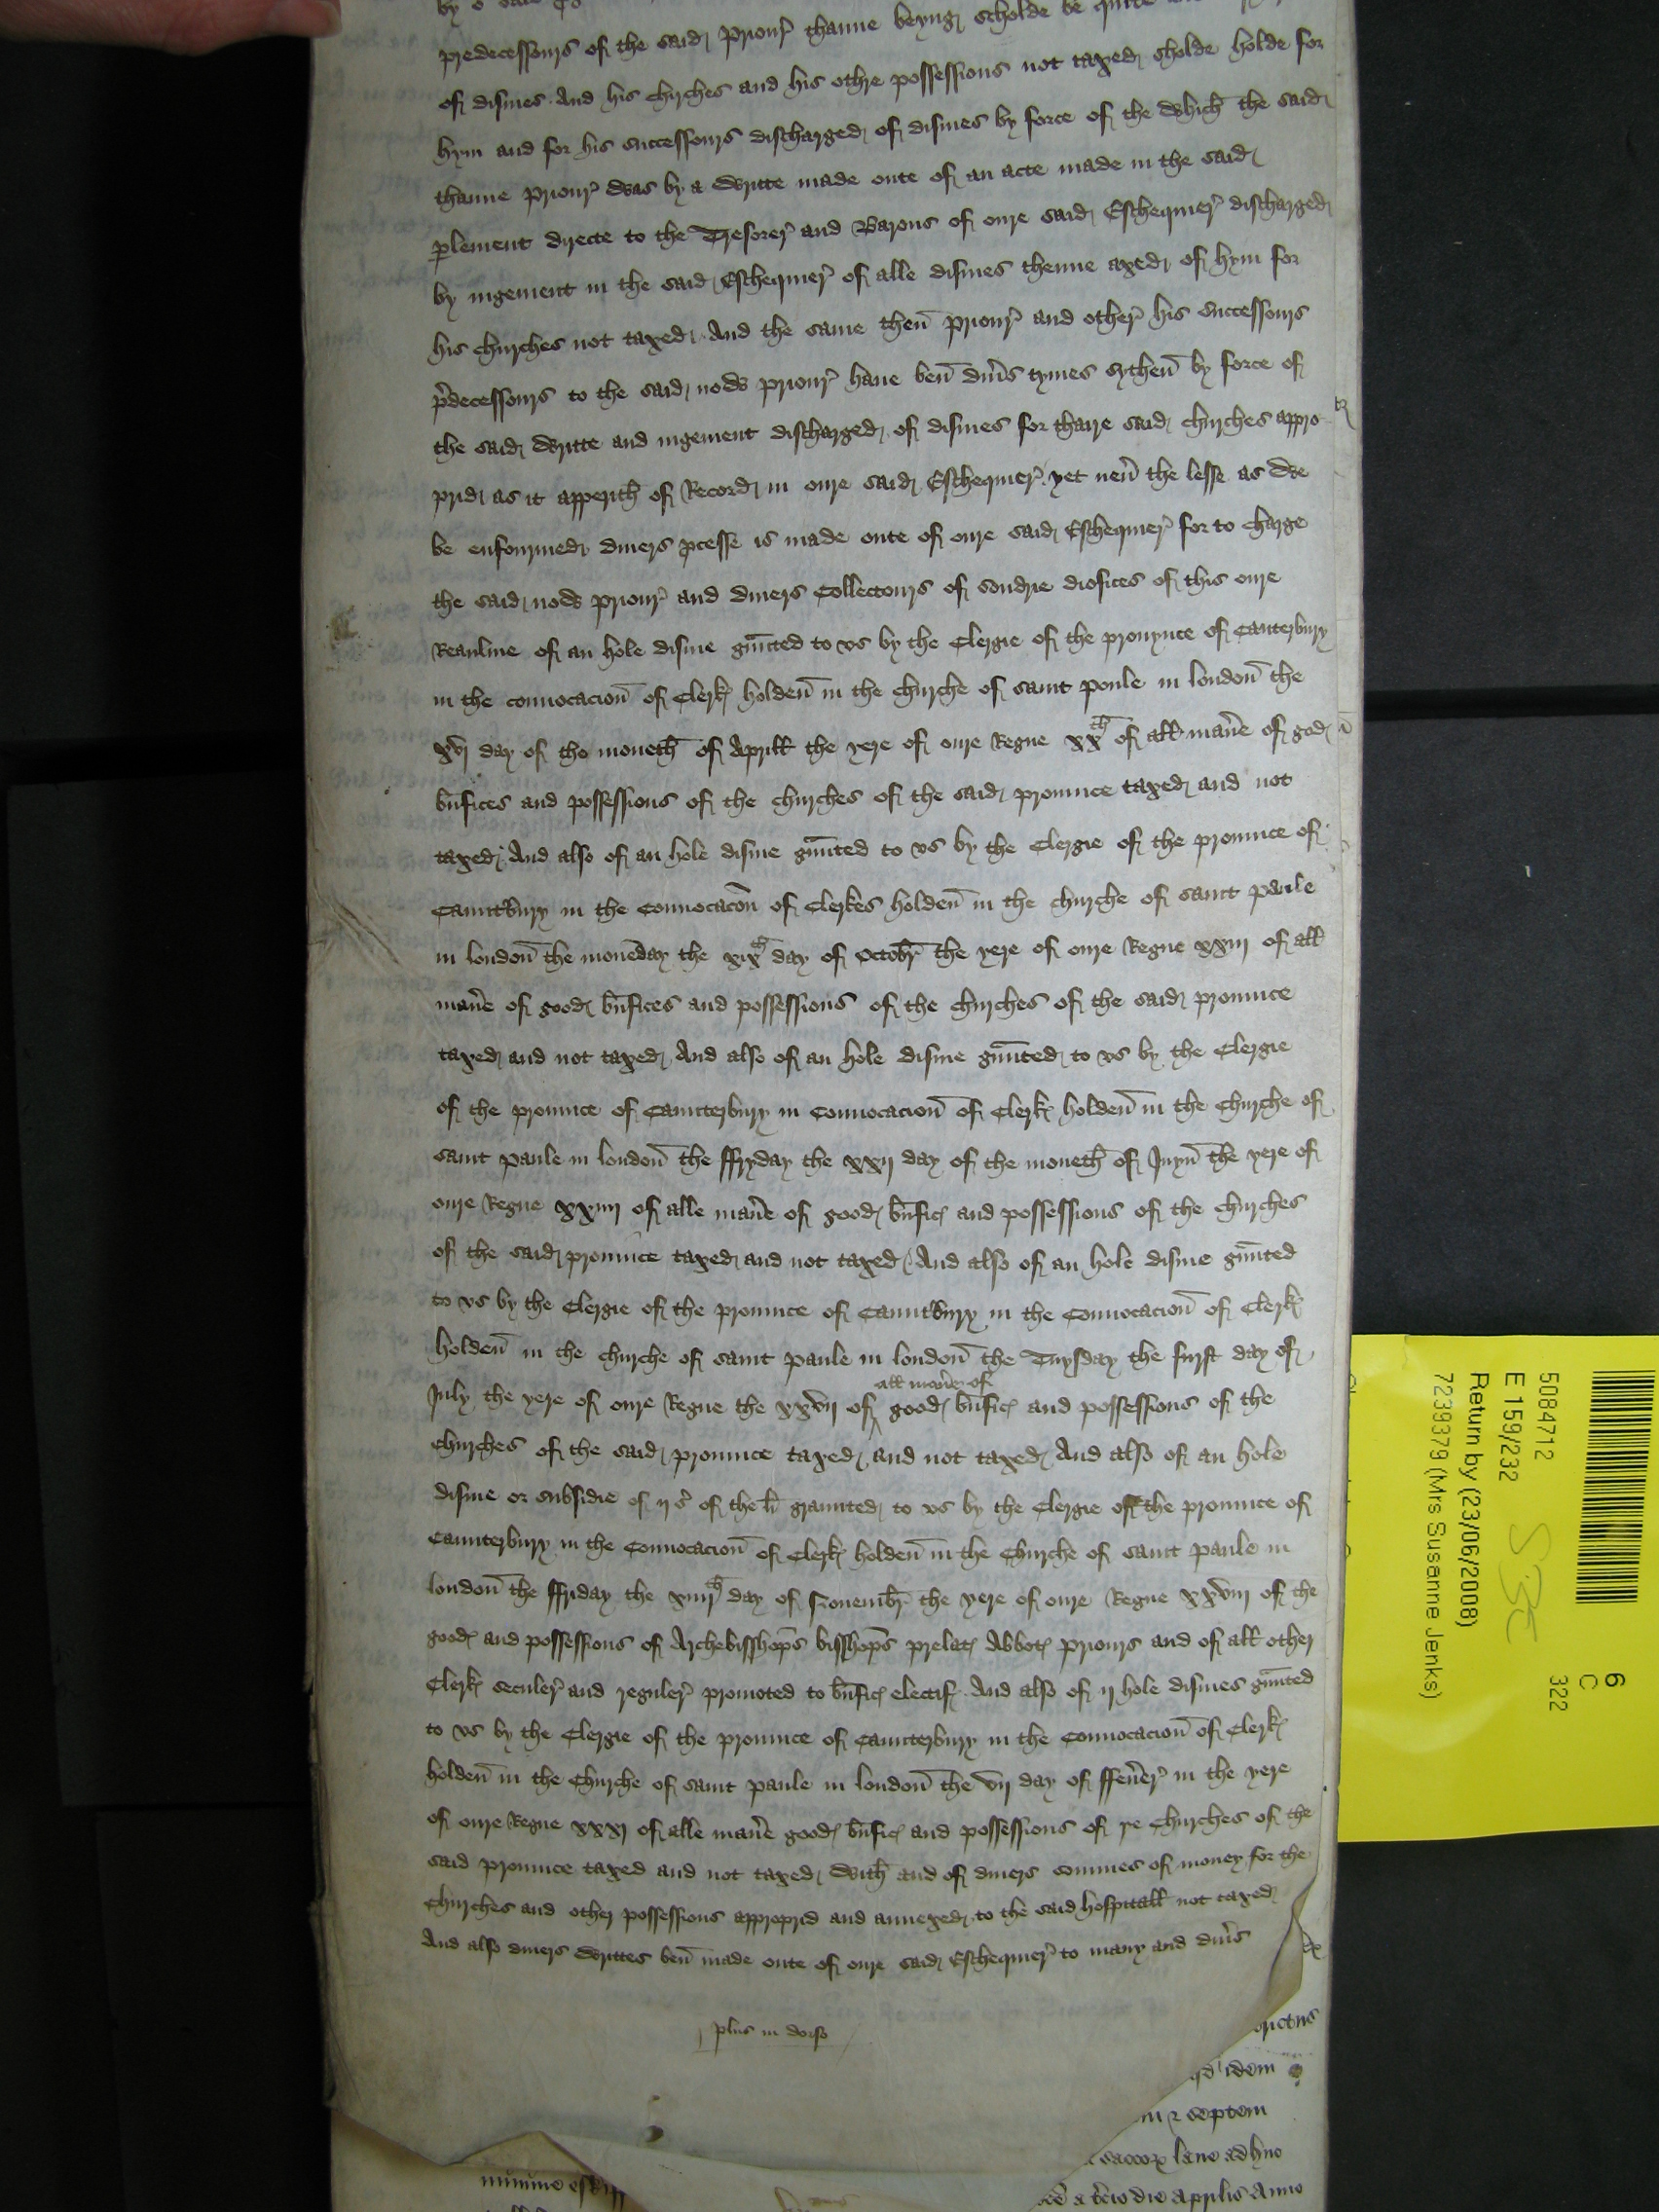 predecessours of the said priour thanne beyng scholde be quite
of dismes And his chirches and his othre possessions not taxed sholde holde for
hym and for his successours discharged of dismes by force of the which the said
thanne priour was by a writte made oute of an acte made in the said
plement directe to the Tresorer and Barons of oure said Eschequier discharged
by iugement in the said Eschequier of alle dismes thenne axed of hym for
his churches not taxed And the same then priour and other his successours
pdecessours to the said nowe priour haue ben dius tymes sithen by force of
the said writte and iugement discharged of dismes for thaire said chirches appro-
prid as it apperith of Record in oure said Eschequier yet neu the lesse as we
be enfourmed diuers pcesse is made oute of oure said Eschequier for to charge
the said nowe priour and diuers Collectours of sondrie diosices of this oure
Reaulme of an hole disme gunted to vs by the Clergie of the prouynce of Canterbury
in the conuocacion of Clerk holden in the chirche of saint poule in london the
xvj day of the moneth of Aprill the yere of oure Regne xxth of all manere of god
bnfices and possessions of the churches of the said prouince taxed and not
taxed And also of an hole disme gunted to vs by the Clergie of the prouince of
Cauntbury in the Conuocacon of Clerkes holden in the chirche of saint paule
in london the moneday the xixth day of Octobr the yere of oure Regne xxiij of all
manere of good bnfices and possessions of the chirches of the said prouince
taxed and not taxed And also of an hole disme gunted to vs by the Clergie
of the prouince of Caunterbury in Conuocacion of Clerk holden in the Chirche of
saint paule in london the ffryday the xxij day of the moneth of Juyn the yere of
oure Regne xxiiij of alle manere of good bnfic and possessions of the chirches
of the said prouince taxed and not taxed And also of an hole disme gunted
to vs by the Clergie of the prouince of Cauntbury in the Conuocacion of Clerk
holden in the chirche of saint paule in london the Tuysday the furst day of
all manere of
July the yere of oure Regne the xxvij of good bnfic and possessions of the
Chirches of the said prouince taxed and not taxed And also of an hole
disme or subsidie of ij s of the li graunted to vs by the Clergie of the prouince of
Caunterbury in the Conuocacion of Clerk holden in the Chirche of saint paule in
london the ffriday the xiiijth day of Nouembr the yere of oure Regne xxviij of the
good and possessions of Archebisshops bisshops prelat Abbot priours and of all other
Clerk seculer and reguler promoted to bnfic electif And also of ij hole dismes gunted
to vs by the Clergie of the prouince of Caunterbury in the Conuocacion of Clerk
holden in the Chirche of saint paule in london the vij day of ffeuer in the yere
of oure Regne xxxj of alle manere good bnfic and possessions of ye Chirches of the
said prouince taxed and not taxed with and of diuers sommes of money for the
Chirches and other possessions approprid and annexed to the said hospitall not taxed
And also diuers writtes ben made oute of oure said Eschequier to many and dius
plus in dorso
qd idem
septem
lane ad huc
die Aprilis Anno
508471 2
E 159/232
Return by (23/06/2008)
7239379 (Mrs Susanne Jenks)
S3C
6
C
322